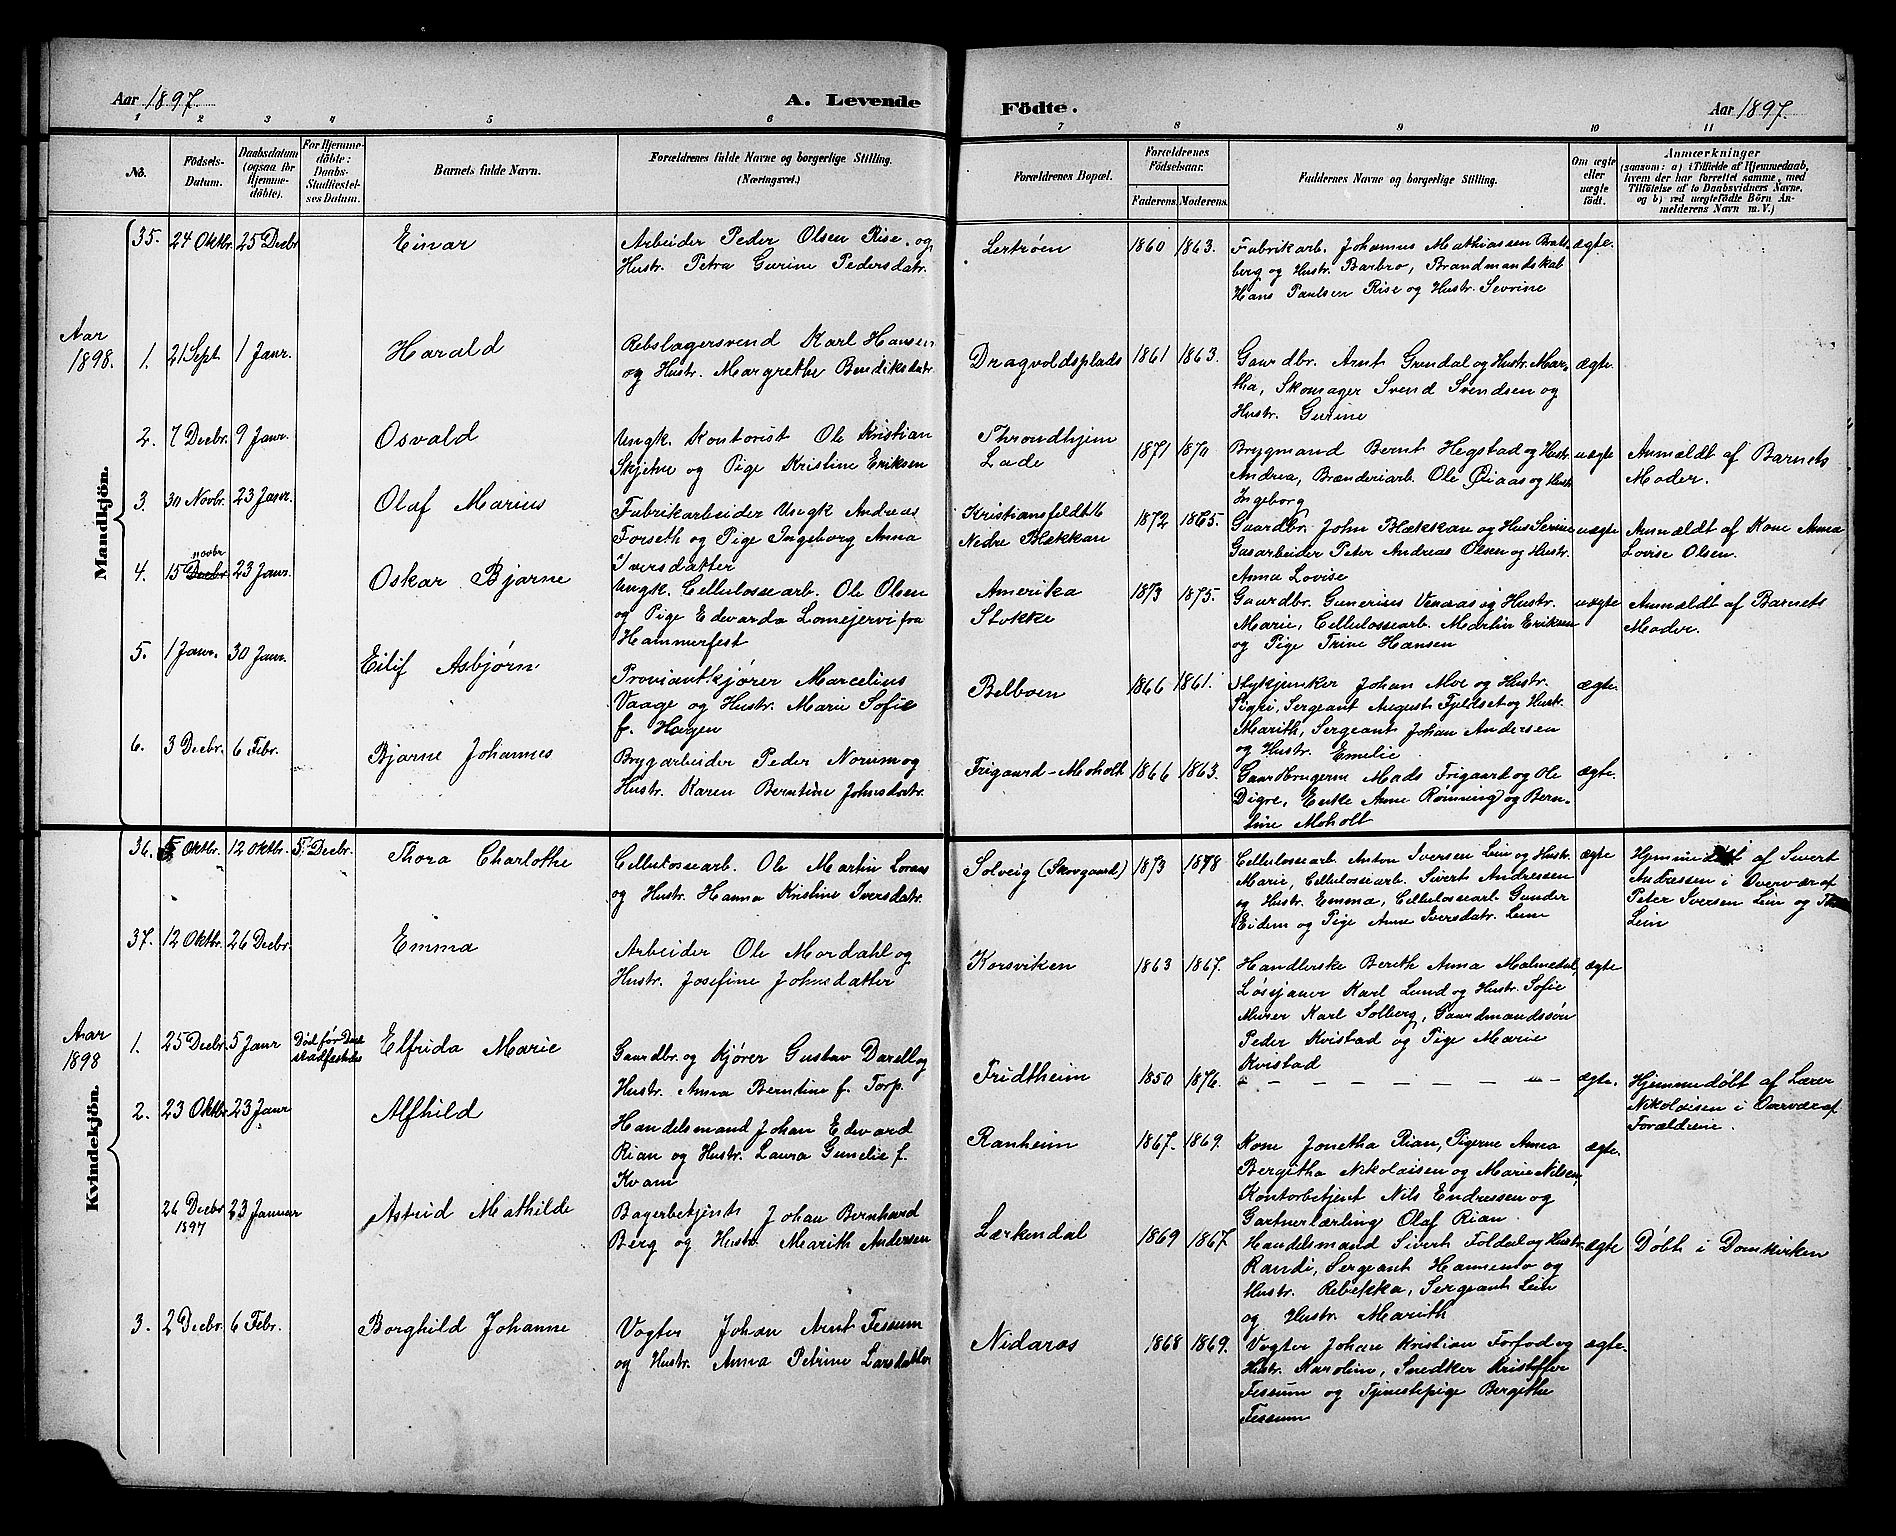 Aar 1897.
A. Levende
Födte.
Aar 1897.
1 2 3 4 5 6 7 8 9 10 11
No.
Födsels-
Datum.
Daabsdatum
(ogsaa för
Hjemme-
döbte).
For Hjemme-
döbte:
Daabs-
Stadfæstel-
ses Datum.
Barnets fulde Navn.
Forældrenes fulde Navne og borgerlige Stilling.
(Næringsvei.)
Forældrenes Bopæl.
Forældrenes
Födselsaar.
Faderens. Moderens.
Faddernes Navne og borgerlige Stilling.
Om ægte
eller
uægte
födt.
Anmærkninger
(saasom: a) i Tilfælde af Hjemmedaab,
hvem der har forrettet samme, med
Tilföielse af to Daabsvidners Navne,
og b) ved uægtefödte Börn An-
melderens Navn m. V.)
Mandkjön.
35. 24 Oktbr. 25 Decbr Einar
Arbeider Peder Olsen Rise, og
Hustr. Petra Gurine Pedersdatr.
Lertrøen 1860 1863.
Fabrikarb. Johannes Mathiassen Brats-
berg og Hustr. Barbro, Brandmandskab
Hans Paulsen Rise og Hustr. Sevrine
ægte.
Aar
1898.
1. 21 Sept. 1 Janr. Harald
Rebslagersvend Karl Hansen
og Hustr. Margrethe Bendiksdatr.
Dragvoldsplads 1861 1863.
Gaardbr. Arnt Grendal og Hustr. Mar-
tha, Skomager Svend Svendsen og
Hustr. Gurine
ægte.
2. 7 Decbr. 9 Janr. Osvald
Ungk. Kontorist Ole Kristian
Skjehn og Pige Kristine Eriksen
Throndhjem
Lade 1871 1870
Brygmand Bernt Hegstad og Hustr.
Andrea, Brænderiarb. Ole Øiaas og Hustr.
Ingeborg
uægte
Anmældt af Barnets
Moder.
3. 30 Novbr. 23 Janr. Olaf Marius
Fabrikarbeider Ungk Andreas
Forseth og Pige Ingeborg Anna
Iversdatter
Kristiansfeldt
Nedre Blekkan 1872 1865.
Gaardbr. John Blækkan og Hus Serine
Gasarbeider Peter Andreas Olsen og Hustr.
Anna Lovise
uægte
Anmældt af Kone Anna
Lovise Olsen.
4. 15 Decbr novbr 23 Janr. Oskar Bjarne
Ungk. Cellulossearb. Ole Olsen
og Pige Edevarda Lomejervi fra
Hammerfest
Amerika
Stokke 1873 1875.
Gaardbr. Gunerius Venaas og Hustr.
Marie, Cellulossearb. Martin Eriksen
og Pige Trine Hansen
uægte
Anmældt af Barnets
Moder.
5. 1 Janr. 30 Janr. Eilif Asbjørn
Proviantkjører Marcelius
Vaage og Hustr. Marie Sofie
f. Hagen
Belboen 1866 1861.
Stykjunker Johan Moe og Hustr.
Sigri, Sergeant August Fjeldset og Hustr.
Marith, Sergeant Johan Andersen
og Hustr. Emelie
ægte.
6. 3 Decbr. 6 Febr. Bjarne Johannes
Brygarbeider Peder Norum og
Hustr. Karen Berntine Johnsdatr.
Frigaard-Moholt 1866 1863.
Gaardbrugerne Mads Frigaard og Ole
Digre, Enke Anne Rønning og Bern-
tine Moholt
ægte.
Kvindekjön.
36. 5 Oktbr. 12 Oktbr. 5. Decbr. Thora Charlothe
Cellulossearb. Ole Martin Loraas
og Hustr. Hanna Kristine Iversdatr.
Solveig (Skovgaard) 1873 1878
Cellulossearb. Anton Iversen Lein og Hustr.
Marie, Cellulossearb. Sivert Andressen
og Hustr. Emma, Cellulossearb Gunder
Eidem og Pige Anne Iversdatr. Lein
ægte
Hjemmedøbt af Sivert
Andressen i Overvær af
Peter Iversen Lein og
Lein
37. 12 Oktbr. 26 Decbr. Emma
Arbeider Ole Mordahl og
Hustr. Josefine Johnsdatter
Korsviken 1863 1867.
Handlerske Berith Anna Malmedal,
Løssjauer Karl Lund og Hustr. Sofie
Murer Karl Solberg, Gaardmandssøn
Peder Kvistad og Pige Marie
Kvistad
ægte
Aar
1898
1. 25 Decbr. 5 Janr Død før Daab
stadfæstelse Elfrida Marie
Gaardbr. og Kjører Gustav Darell og
Hustr. Anna Berntine f. Torp.
Fridtheim 1850 1876.
- - - - - - - - -
ægte.
Hjemmedøbt af Lærer
Nikolaisen i Overvær af
Forældrene.
2. 23 Oktbr 23 Janr Alfhild
Handelsmand Johan Edevard
Rian og Hustr. Laura Gunelie f.
Kvam
Ranheim 1867. 1869.
Kone Jonetha Rian, Pigerne Anna
Bergitha Nikolaisen og Marie Nilsen,
Kontorbetjent Nils Endressen og
Gartnerlærling Olaf Rian.
ægte.
26 Decbr 23 Januar
1897
Astrid Mathilde
Bagerbetjent Johan Bernhard
Berg og Hustr. Marith Andersen
Lærkendal 1869 1867.
Handelsmand Sivert Foldal og Hustr.
Randi, Sergeant Hannemo og
Hustr. Rebekka, Sergeant Lein
og Hustr. Marith
ægte
Døbt i Domkirken
3. 2 Decbr 6 Febr. Borghild Johanne
Vogter Johan Arnt Fessum
og Hustr. Anna Petrine Larsdatter
Nidaros 1868 1869.
Vogter Johan Kristian Forfod og
Hustr. Karoline, Snedker Kristoffer
Fessum og Tjenestepige Bergithe
Fessum
ægte.